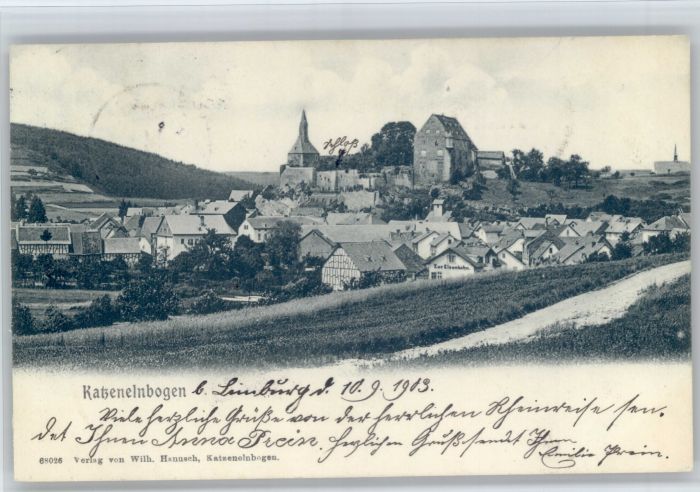 Schloß
Zur Eisenbahn.
Katzenelnbogen b. Limburg d. 10.9.1903.
Viele herzliche Grüße von der herrlichen Rheinreise sen-
det Ihnen Anna Prein. Herzlichen Gruß sendet Ihnen
Emilie Prein.
68026 Verlag von Wilh. Hanusch, Katzenelnbogen.